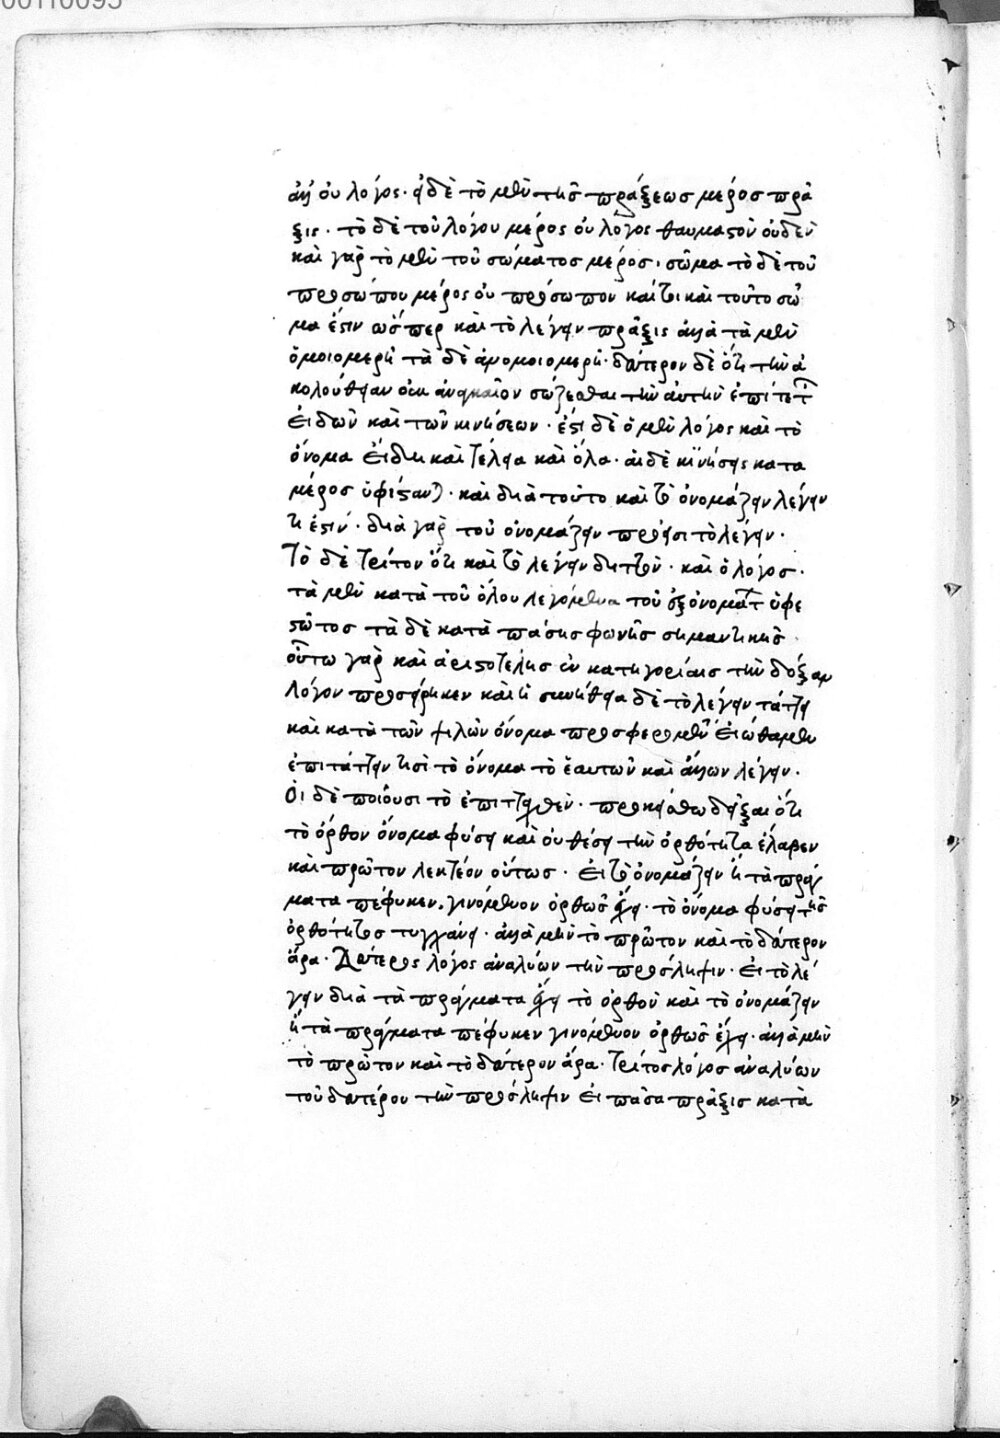 00110095
ἀλλ' οὐ λόγος· εἰ δὲ τὸ μὲν τῆς πράξεως μέρος πρᾶ
ξις· τὸ δὲ τοῦ λόγου μέρος οὐ λόγος θαυμαστὸν οὐδέν
καὶ γὰρ τὸ μὲν τοῦ σώματος μέρος, σῶμα τὸ δὲ τοῦ
προσώπου μέρος οὐ πρόσωπον καίτοι καὶ τοῦτο σῶ
μα ἐστὶν ὥσπερ καὶ τὸ λέγειν πρᾶξις ἀλλὰ τὰ μὲν
ὁμοιομερῆ τὰ δὲ ἀνομοιομερῆ· δεύτερον δὲ ὅτι τὴν ἀ
κολούθειαν οὐκ ἀναγκαῖον σώζεσθαι τὴν αὐτὴν ἐπί τε τ
εἰδῶν καὶ τῶν κινήσεων· ἔστι δὲ ὁ μὲν λόγος καὶ τὸ
ὄνομα εἴδη καὶ τέλεια καὶ ὅλα· αἱ δὲ κινήσεις κατα
μέρος ὑφίσταν· καὶ διὰ τοῦτο καὶ τὸ ὀνομάζειν λέγειν
τι ἐστίν· διὰ γὰρ τοῦ ὀνομάζειν πρόεισι τὸ λέγειν·
Τὸ δὲ τρίτον ὅτι καὶ τὸ λέγειν διττὸν· καὶ ὁ λόγος·
τὰ μὲν κατὰ τοῦ ὅλου λεγόμενα τοῦ ἐξ ὀνομάτ ὑφε
στῶτος τὰ δὲ κατὰ πάσης φωνῆς σημαντικῆς·
οὕτω γὰρ καὶ ἀριστοτέλης ἐν κατηγορίαις τὴν δόξαν
λόγον προσείρηκεν καὶ ἡ συνήθεια δὲ τὸ λέγειν τάττει
καὶ κατὰ τῶν ψιλῶν ὄνομα προσφερομεν εἰώθαμεν
ἐπιτάττειν τισὶ τὸ ὄνομα τὸ ἑαυτῶν καὶ ἄλλων λέγειν·
Οἱ δὲ ποιοῦσι τὸ ἐπιταχθὲν· προκείσθω δεῖξαι ὅτι
τὸ ὀρθὸν ὄνομα φύσει καὶ οὐ θέσει τὴν ὀρθότητα ἔλαβεν
καὶ πρῶτον λεκτέον οὕτως· εἰ τὸ ὀνομάζειν ᾗ τὰ πράγ
ματα πέφυκεν, γινόμενον ὀρθῶς ἔχει· τὸ ὄνομα φύσει τῆς
ὀρθότητος τυγχάνει· ἀλλὰ μὴν τὸ πρῶτον καὶ τὸ δεύτερον
ἄρα· Δεύτερος λόγος ἀναλύων τὴν πρόσληψιν· εἰ τὸ λέ
γειν διὰ τὰ πράγματα ἔχει τὸ ὀρθὸν καὶ τὸ ὀνομάζειν
ᾗ τὰ πράγματα πέφυκεν γινόμενον ὀρθῶς ἔχει· ἀλλὰ μὴν
τὸ πρῶτον καὶ τὸ δεύτερον ἄρα· Τρίτος λόγος ἀναλύων
τοῦ δευτέρου τὴν πρόσληψιν εἰ πᾶσα πρᾶξις κατὰ